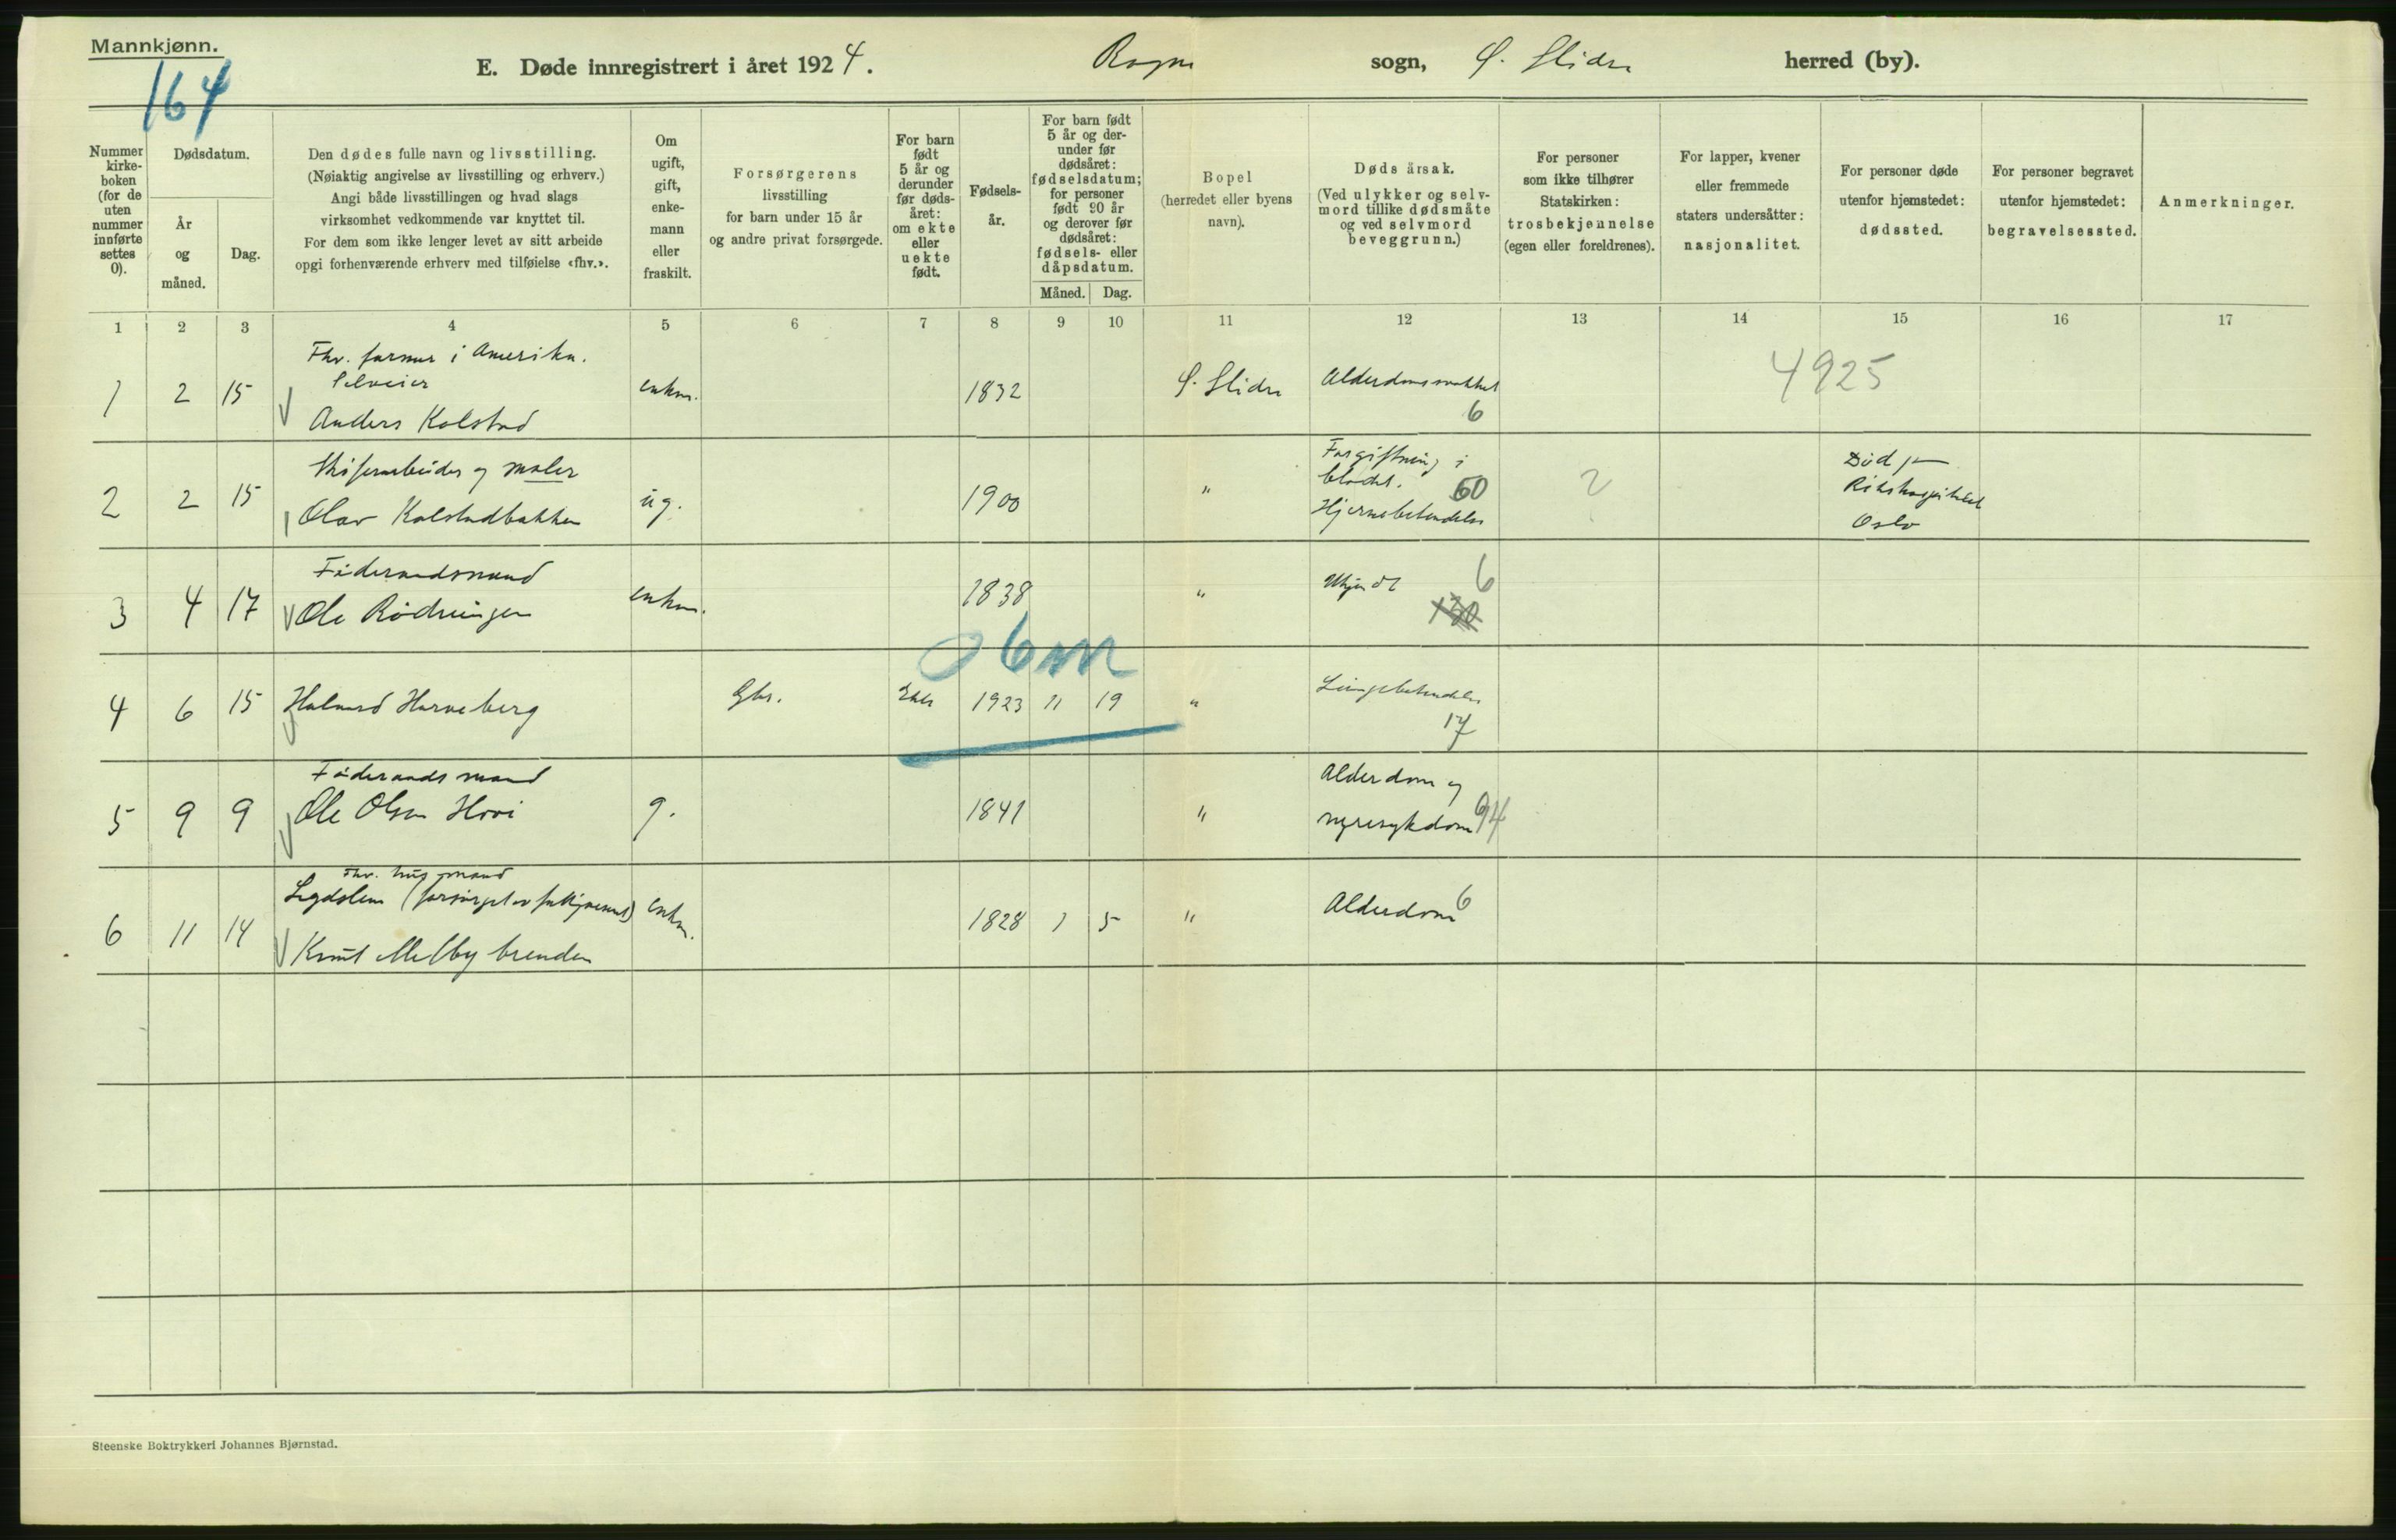 Mannkjønn.
164
E. Døde innregistrert i året 1924. Rogne sogn, Ø. Slidre herred (by).
Nummer kirke-boken (for de uten nummer innførte settes 0).
Dødsdatum.
År og måned.
Dag.
Den dødes fulle navn og livsstilling.
(Nøiaktig angivelse av livsstilling og erhverv.)
Angi både livsstillingen og hvad slags
virksomhet vedkommende var knyttet til.
For dem som ikke lenger levet av sitt arbeide
opgi forhenværende erhverv med tilføielse «fhv.».
Om ugift, gift, enke-mann eller fraskilt.
Forsørgerens
livsstilling
for barn under 15 år
og andre privat forsørgede.
For barn født 5 år og derunder før døds-året: om ekte eller uekte født.
Fødsels-år.
For barn født 5 år og der-under før dødsåret: fødselsdatum; for personer født 90 år og derover før dødsåret: fødsels- eller dåpsdatum.
Måned. Dag.
Bopel
(herredet eller byens
navn).
Døds årsak.
(Ved ulykker og selv-
mord tillike dødsmåte
og ved selvmord
beveggrunn.)
For personer
som ikke tilhører
Statskirken:
trosbekjennelse
(egen eller foreldrenes).
For lapper, kvener
eller fremmede
staters undersåtter:
nasjonalitet.
For personer døde
utenfor hjemstedet:
dødssted.
For personer begravet
utenfor hjemstedet:
begravelsessted.
Anmerkninger.
1 2 3 4 5 6 7 8 9 10 11 12 13 14 15 16 17
Fhv. farmer i Amerika.
Selveier
1 2 15 Anders Kolstad enkm. 1832 Ø. Slidre Alderdomssvakhet 6 4925
Skiferarbeider og maler
2 2 15 Olav Kolstadbakken ug. 1900 " Forgiftning i
blodet. 50
Hjernebetendelse
2
Død på
Rikshospitalet
Oslo
Føderaadsmand
3 4 17 Ole Rødningen enkm. 1838 " Ukjendt 6
130
06m
4 6 15 Halvard Harveberg Gbr. Ekte 1923 11 19 " Lungebetendelse
17
Føderaadsmand
5 9 9 Ole Olsen Hovi g. 1841 " Alderdom og
nyresykdom 94
Fhv. husmand
Legdslem (forsørget av fattigvesenet)
6 11 14 Knut Melbybrenden enkm. 1828 1 5 " Alderdom 6
Steenske Boktrykkeri Johannes Bjørnstad.